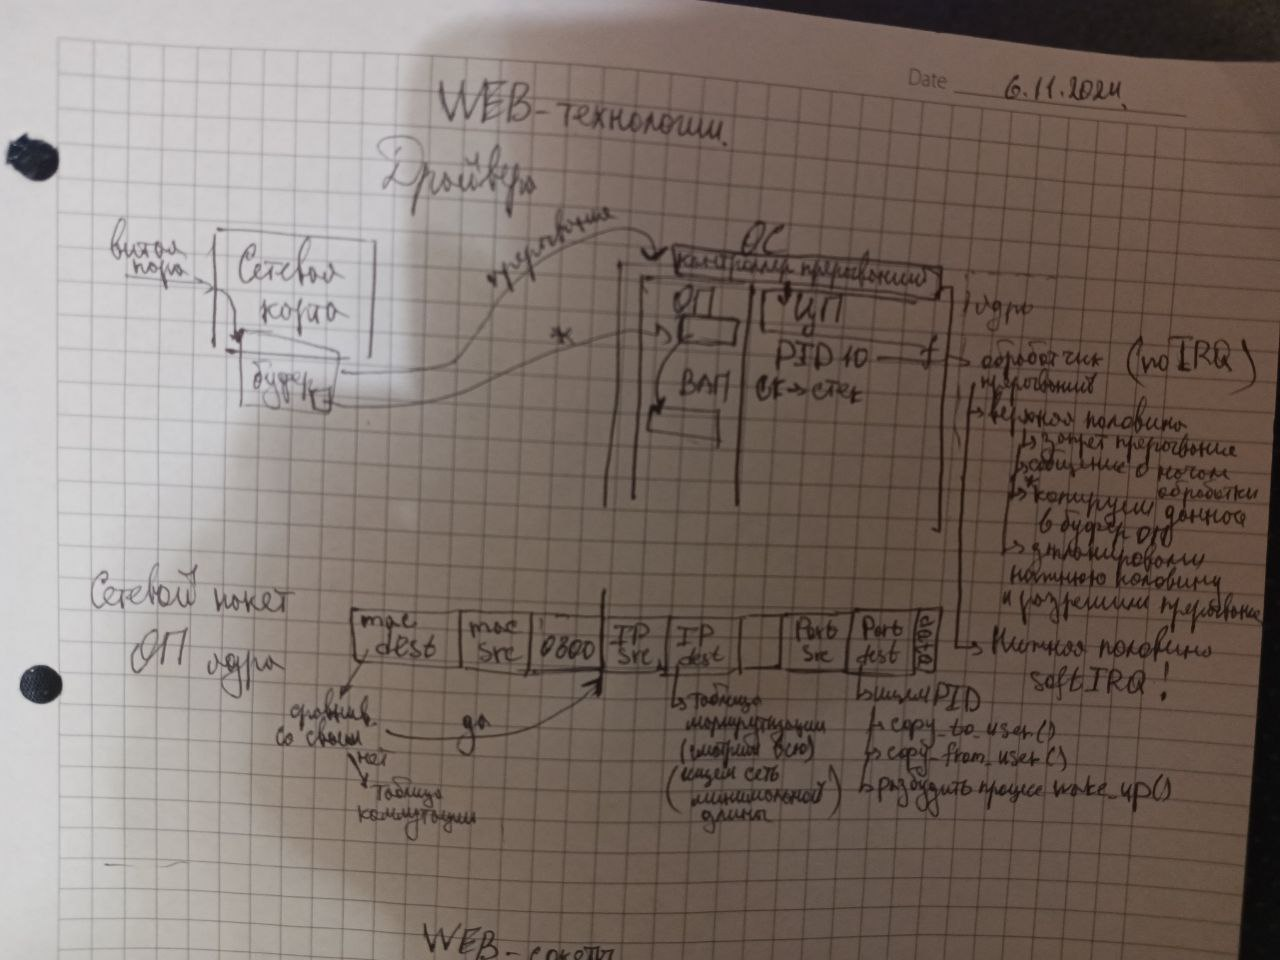 Date 6.11.2024.
WEB-технологии.
Драйвера
витая
пара
Сетевая
карта
буфер
прерывание
*
ОС
контроллер прерываний
ОП
ВАП
ЦП
PID 10
СК → стек
ядро
обработчик
прерывания
(по IRQ)
верхняя половина
запрет прерывание
сообщение о начале
обработки
* копируем данные
в буфер ОП
запланировали
нижнюю половину
и разрешили прерывание
Нижняя половина
soft IRQ!
Сетевой пакет
ОП ядра
mac
dest
mac
src
0800
IP
src
IP
dest
Port
src
Port
dest
data
сравнив.
со своим
да
нет
таблица
коммутации
таблица
маршрутизации
(смотрим всю)
(ищем сеть
минимальной
длины)
ищем PID
copy_to_user()
copy_from_user()
разбудить процесс wake_up()
WEB-сокеты